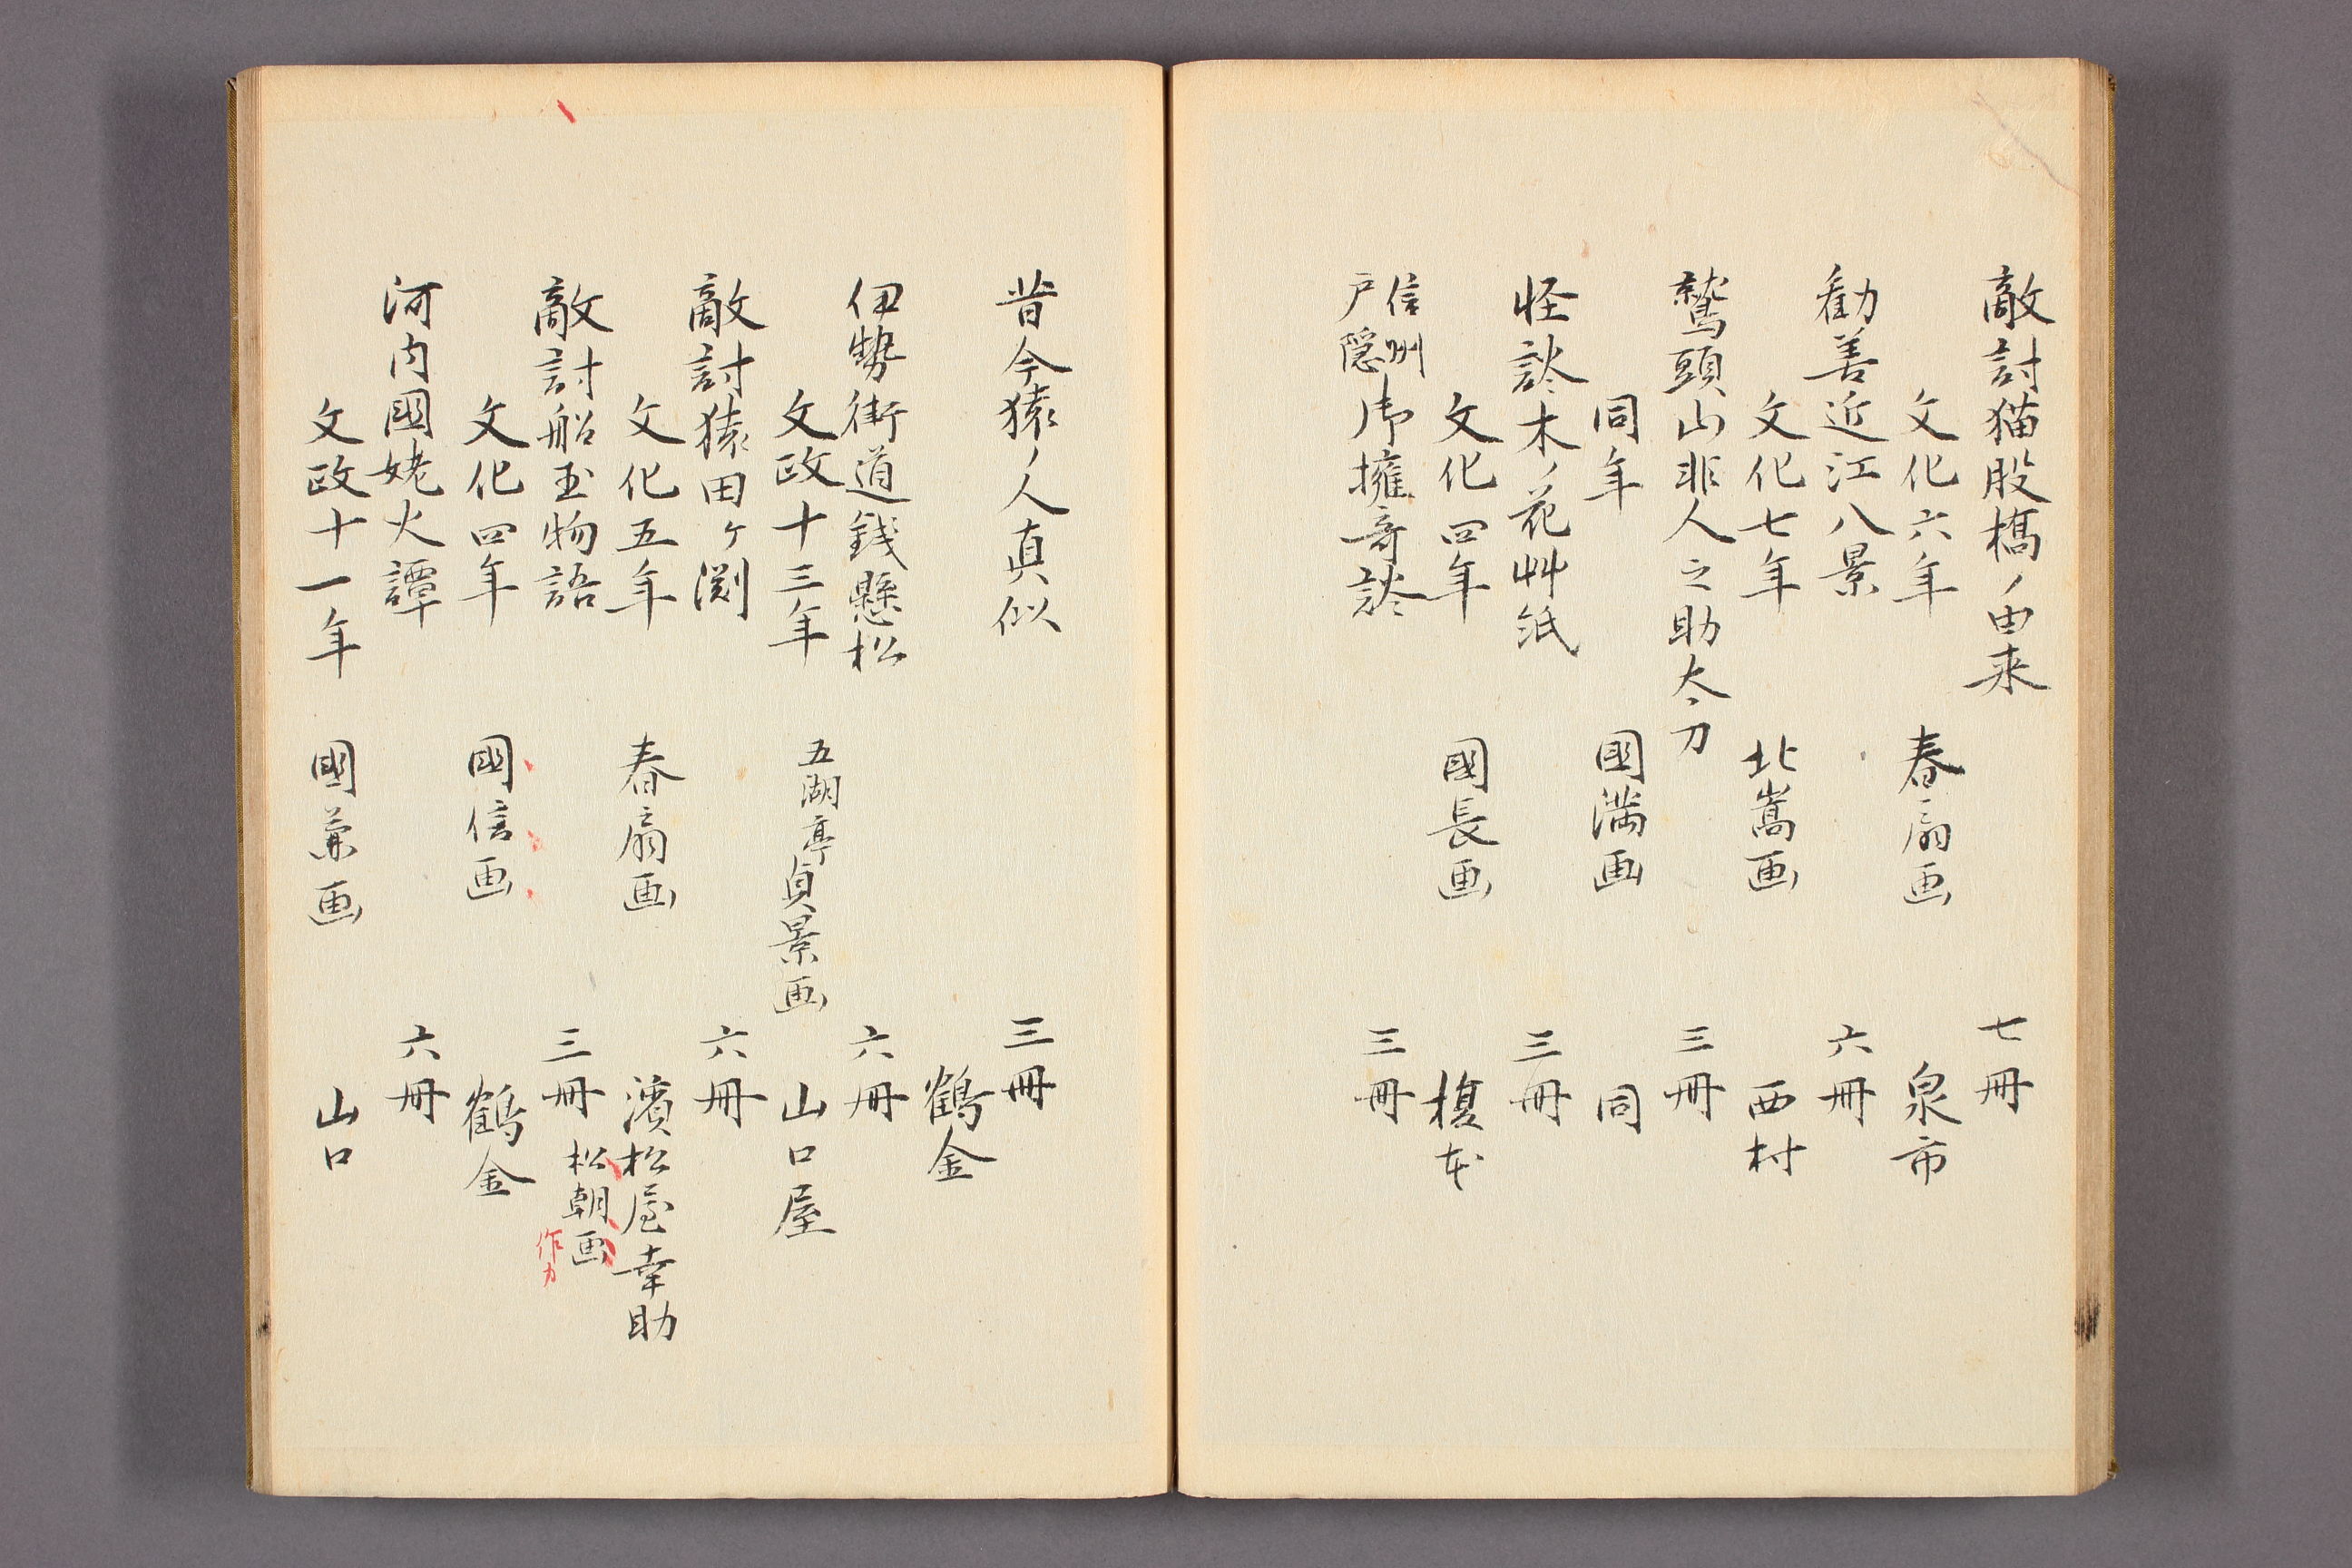 敵討猫股橋ノ由来 七冊
文化六年 春扇画 泉市
勧善近江八景 六冊
文化七年 北嵩画 西村
鷲頭山非人之助太刀 三冊
同年 國満画 同
怪談木ノ花艸紙 三冊
文化四年 國長画 榎本
信州戸隠 御擁奇談 三冊
昔今猿ノ人真似 三冊
鶴金
伊勢街道銭懸松 六冊
文政十三年 五湖亭貞景画 山口屋
敵討猿田ヶ渕 六冊
文化五年 春扇画 濱松屋幸助
敵討船玉物語 三冊 松朝画 作カ
文化四年 國信画 鶴金
河内國姥火譚 六冊
文政十一年 國兼画 山口